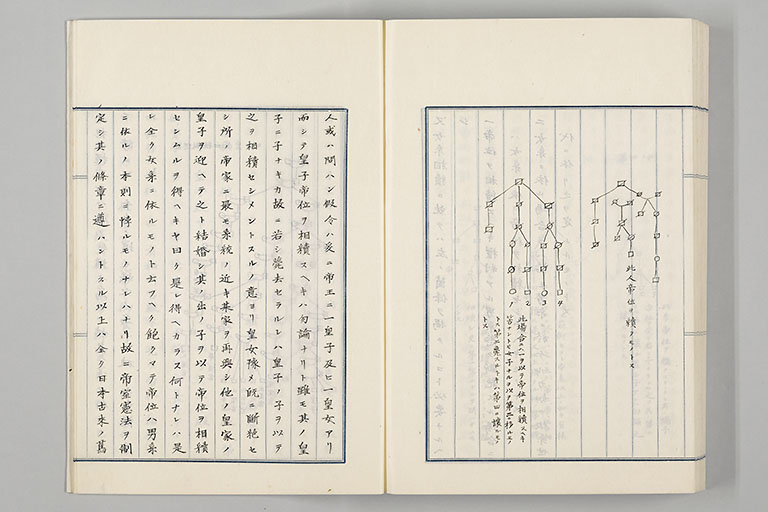 此人帝位ヲ續クモノトス
1
2
3
4
此場合ニハ一ヲ以テ帝位ヲ相續スヘキ
筈ナレトモ女子ナルヲ以テ第二ニ移ルモノ
トス第二薨スルトキハ第四ニ讓ルモノ
トス
人或ハ問ハン假令ハ爰ニ帝王ニ一皇子及ヒ一皇女アリ
而シテ皇子帝位ヲ相續スヘキハ勿論ナリト雖モ其ノ皇
子ニ子ナキカ故ニ若シ薨去セラルレハ皇子ノ子ヲ以テ
之ヲ相續セシメントスルノ意ヨリ皇女豫メ既ニ斷絶セ
シ所ノ帝家ニ最モ系統ノ近キ某家ヲ再興シ他ノ皇家ノ
皇子ヲ迎ヘテ之ト結婚シ其ノ出ノ子ヲ以テ帝位ヲ相續
セシムルヲ得ヘキヤ曰ク是レ得ヘカラス何トナレハ是
レ全ク女系ニ依ルモノト云フヘク飽クマテ帝位ハ男系
ニ依ルノ本則ニ悖ルモノナレハナリ故ニ帝室憲法ヲ制
定シ其ノ條章ニ遵ハントスル以上ハ全ク日本古來ノ舊